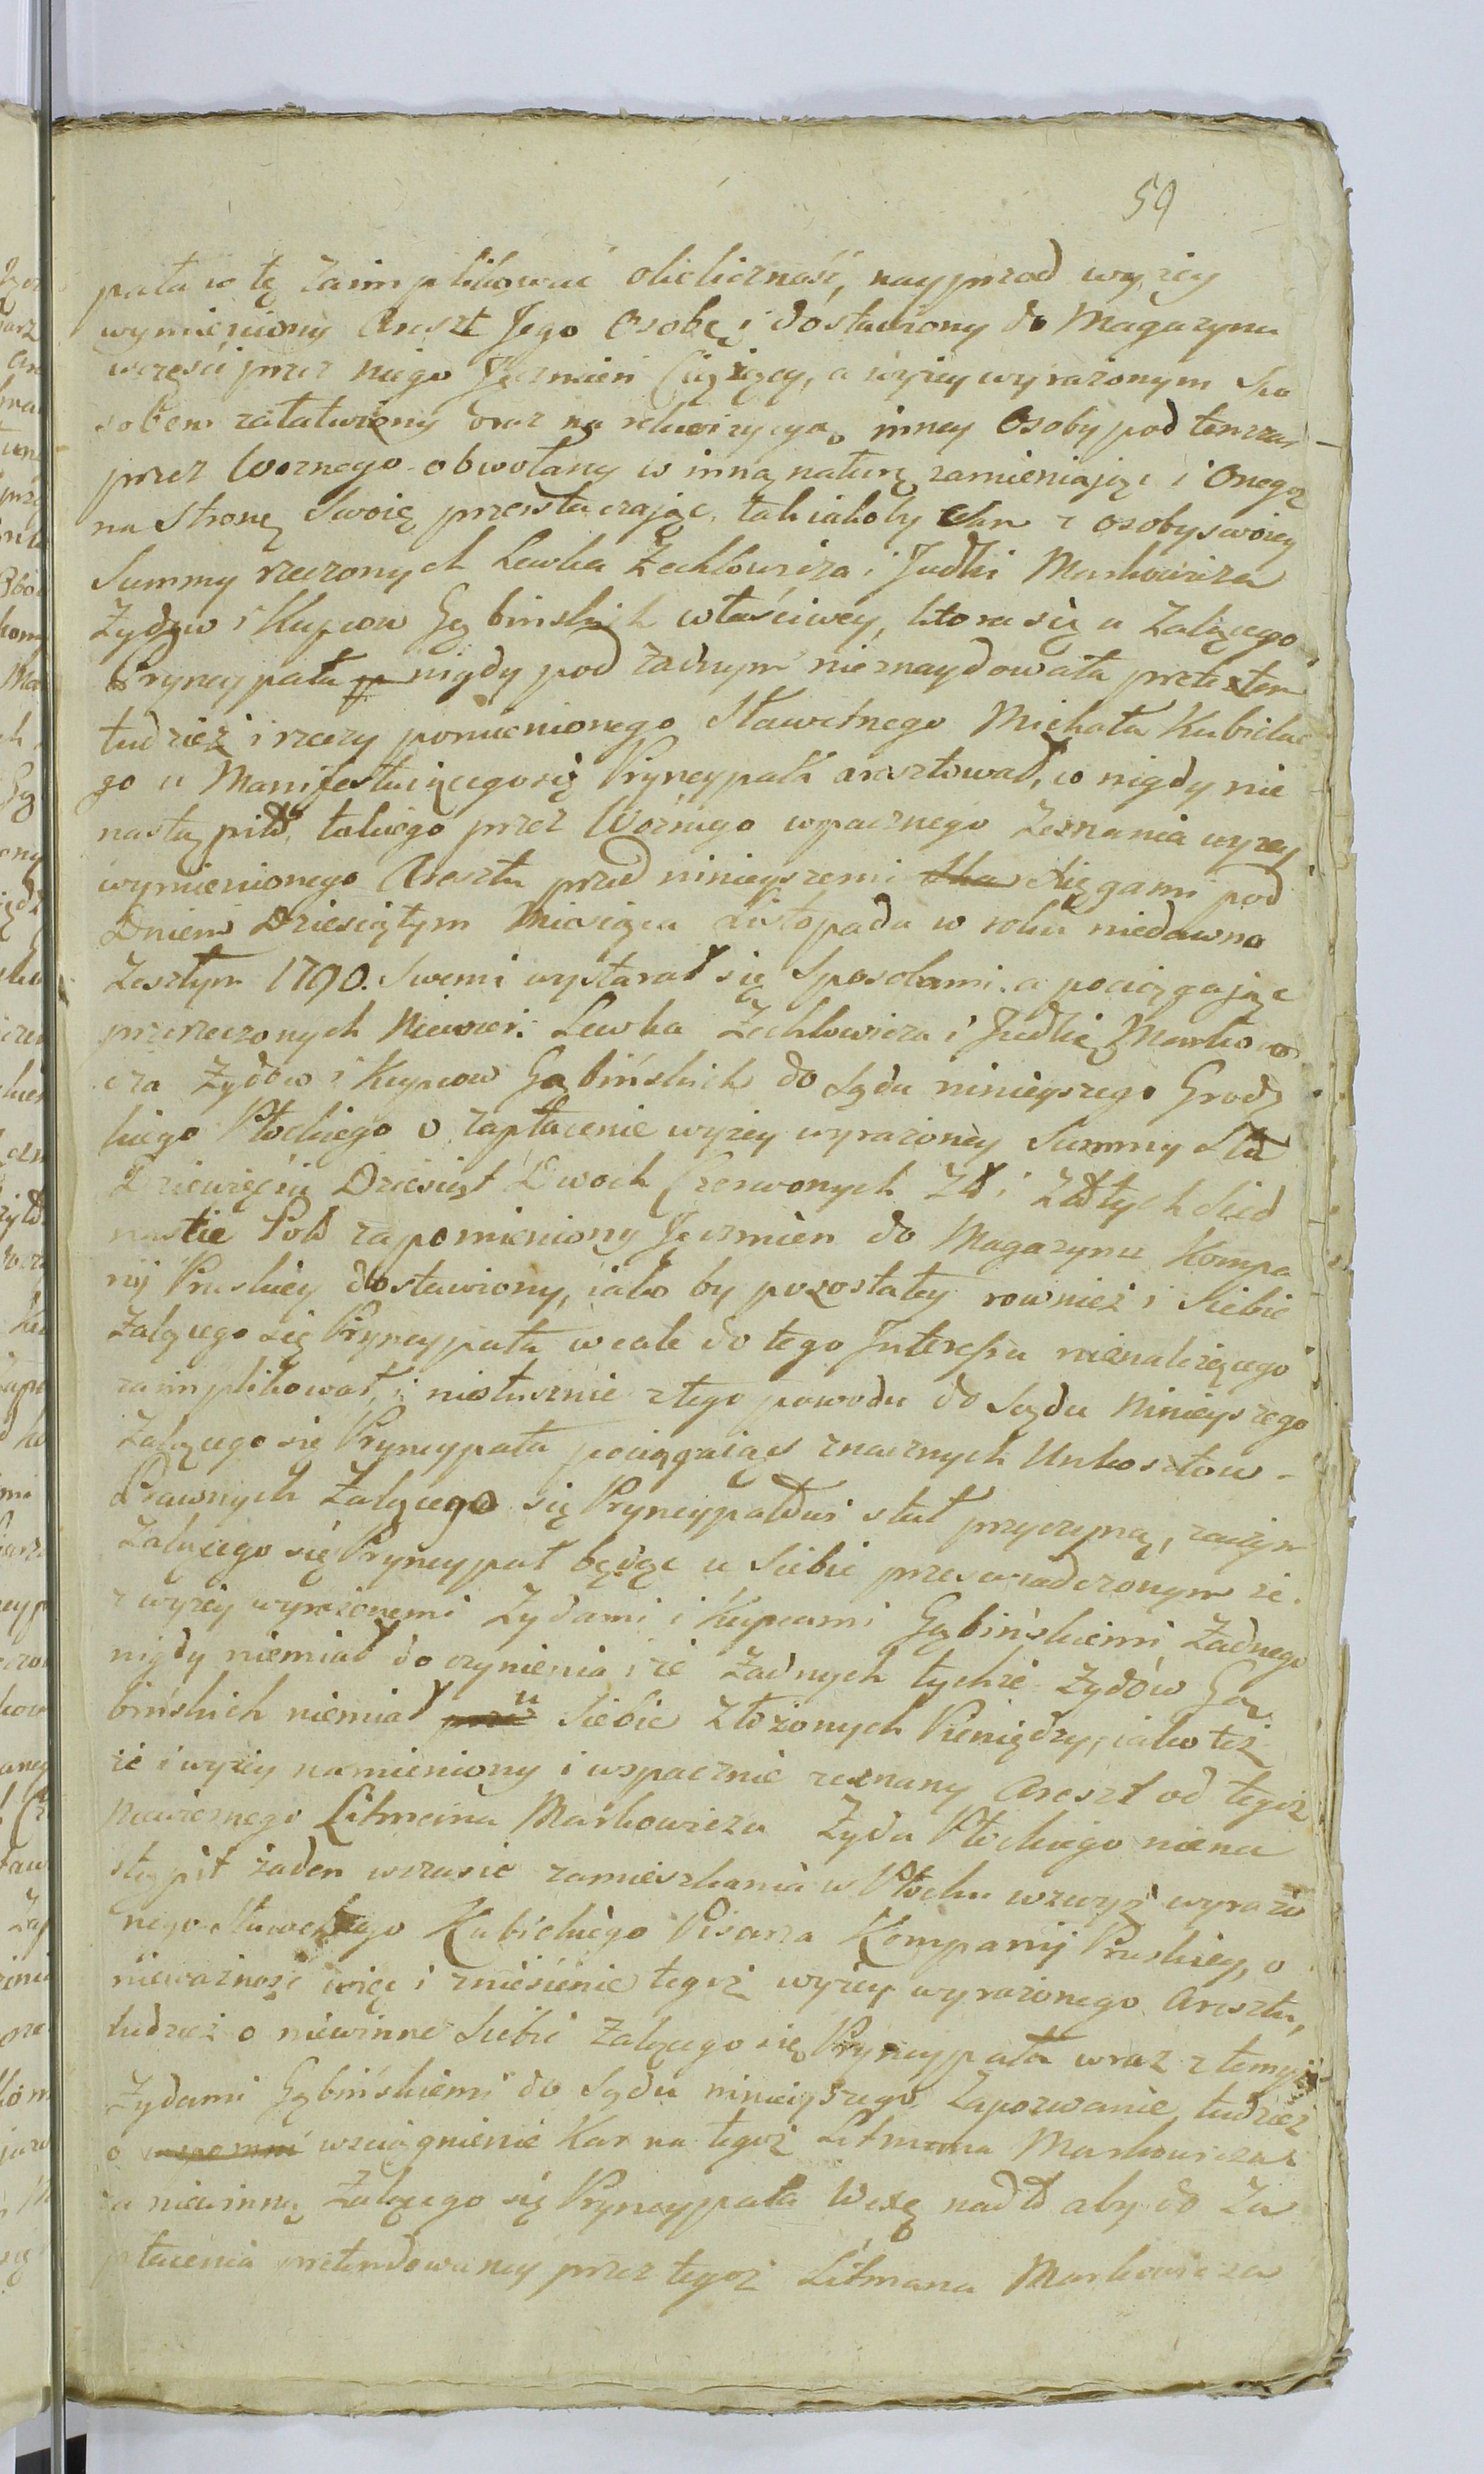 59
pała w tę zaimplikować okoliczność, nayprzod wyżey
wymieniony Areszt Jego Osobę i dostawiony do Magazynu
części przez niego Jęczmień Ciążący, a wyżey wyrażonym Spo
sobem załatwiony oraz na rekwizycyą inney Osoby pod tenczas
przez Woznego obwołany w inną naturę zamieniając i Onegoż
na Stronę Swoię przeistaczając, tak iakoby Sam z osoby swoiey
Summy rzeczonych Lewka Zechlowicza i Judki Markowicza
Zydow i Kupcow Gąbinskich właściwey, ktora się u Zalącego
Pryncypała nigdy pod żadnym nieznaydowała pretextem
tudzież i rzeczy pomienionego Sławetnego Michała Kubickie
go u Manifestuiącegosię Pryncypała aresztował, co nigdy nie
nastąpiło, takiego przez Woźnego wspacznego Zeznania wyzey
wymienionego Aresztu przed ninieyszemi Xięgami pod
Dniem Dziesiątym Miesiąca Listopada w roku niedawno
Zeszłym 1790. Swemi wystarał się Sposobami. a pociągając
przerzeczonych Niewier: Lewka Zechlowicza i Judkę Markowi
cza Zydow i Kupcow Gąbińskich do Sądu ninieyszego Grodz
kiego Płockiego o zapłacenie wyżey wyrażoney Summy Sta
Dziewięciu Dziesiąt Dwoch Czerwonych Zł i Złłtych Sied
nastie Pols za pomieniony Jęczmień do Magazynu Kompa
nij Pruskiey dostawiony, iako by pozostałey rownież i Siebie
Zalącego się Pryncypała wcale do tego Interessu nienależącego
zaimplikował, i niesłusznie z tego powodu do Sądu Ninieyszego
Zalącego się Pryncypała pociągaiąc znacznych Unkosztow
Prawnych Zalącego się Pryncypałowi stał przyczyną, zaczym
Zalącego się Pryncypał będąc u Siebie przeswiadczonym że
z wyżey wyrażonemi Zydami i Kupcami Gąbińskiemi Żadnego
nigdy niemiał do czynienia i że Żadnych tychże Zydów Gą
bińskich niemiał u Siebie Złożonych Pieniędzy, iako też
że i wyżey namieniony i wspacznie zeznany Areszt od tegoż
Niewiernego Litmana Markowicza Zyda Płockiego niena
stąpił żaden wczasie zamieszkania w Płocku wzwyż wyrażo
nego Sławetnego Kubickiego Pisarza Kompanij Pruskiey, o
nieważność więc i zniesienie tegoż wyżey wyrażonego Aresztu,
tudzież o niewinne Siebie Zalącego się Pryncypała wraz z temyż
Zydami Gąbińskiemi do Sądu ninieyszego Zapozwanie, tudzież
o wsciągnienie Kar na tegoż Litmana Markowicza
za niewinną Zalącego się Pryncypała Wexę nadto aby do Za
płacenia pretendowaney przez tegoż Litmana Markowicza